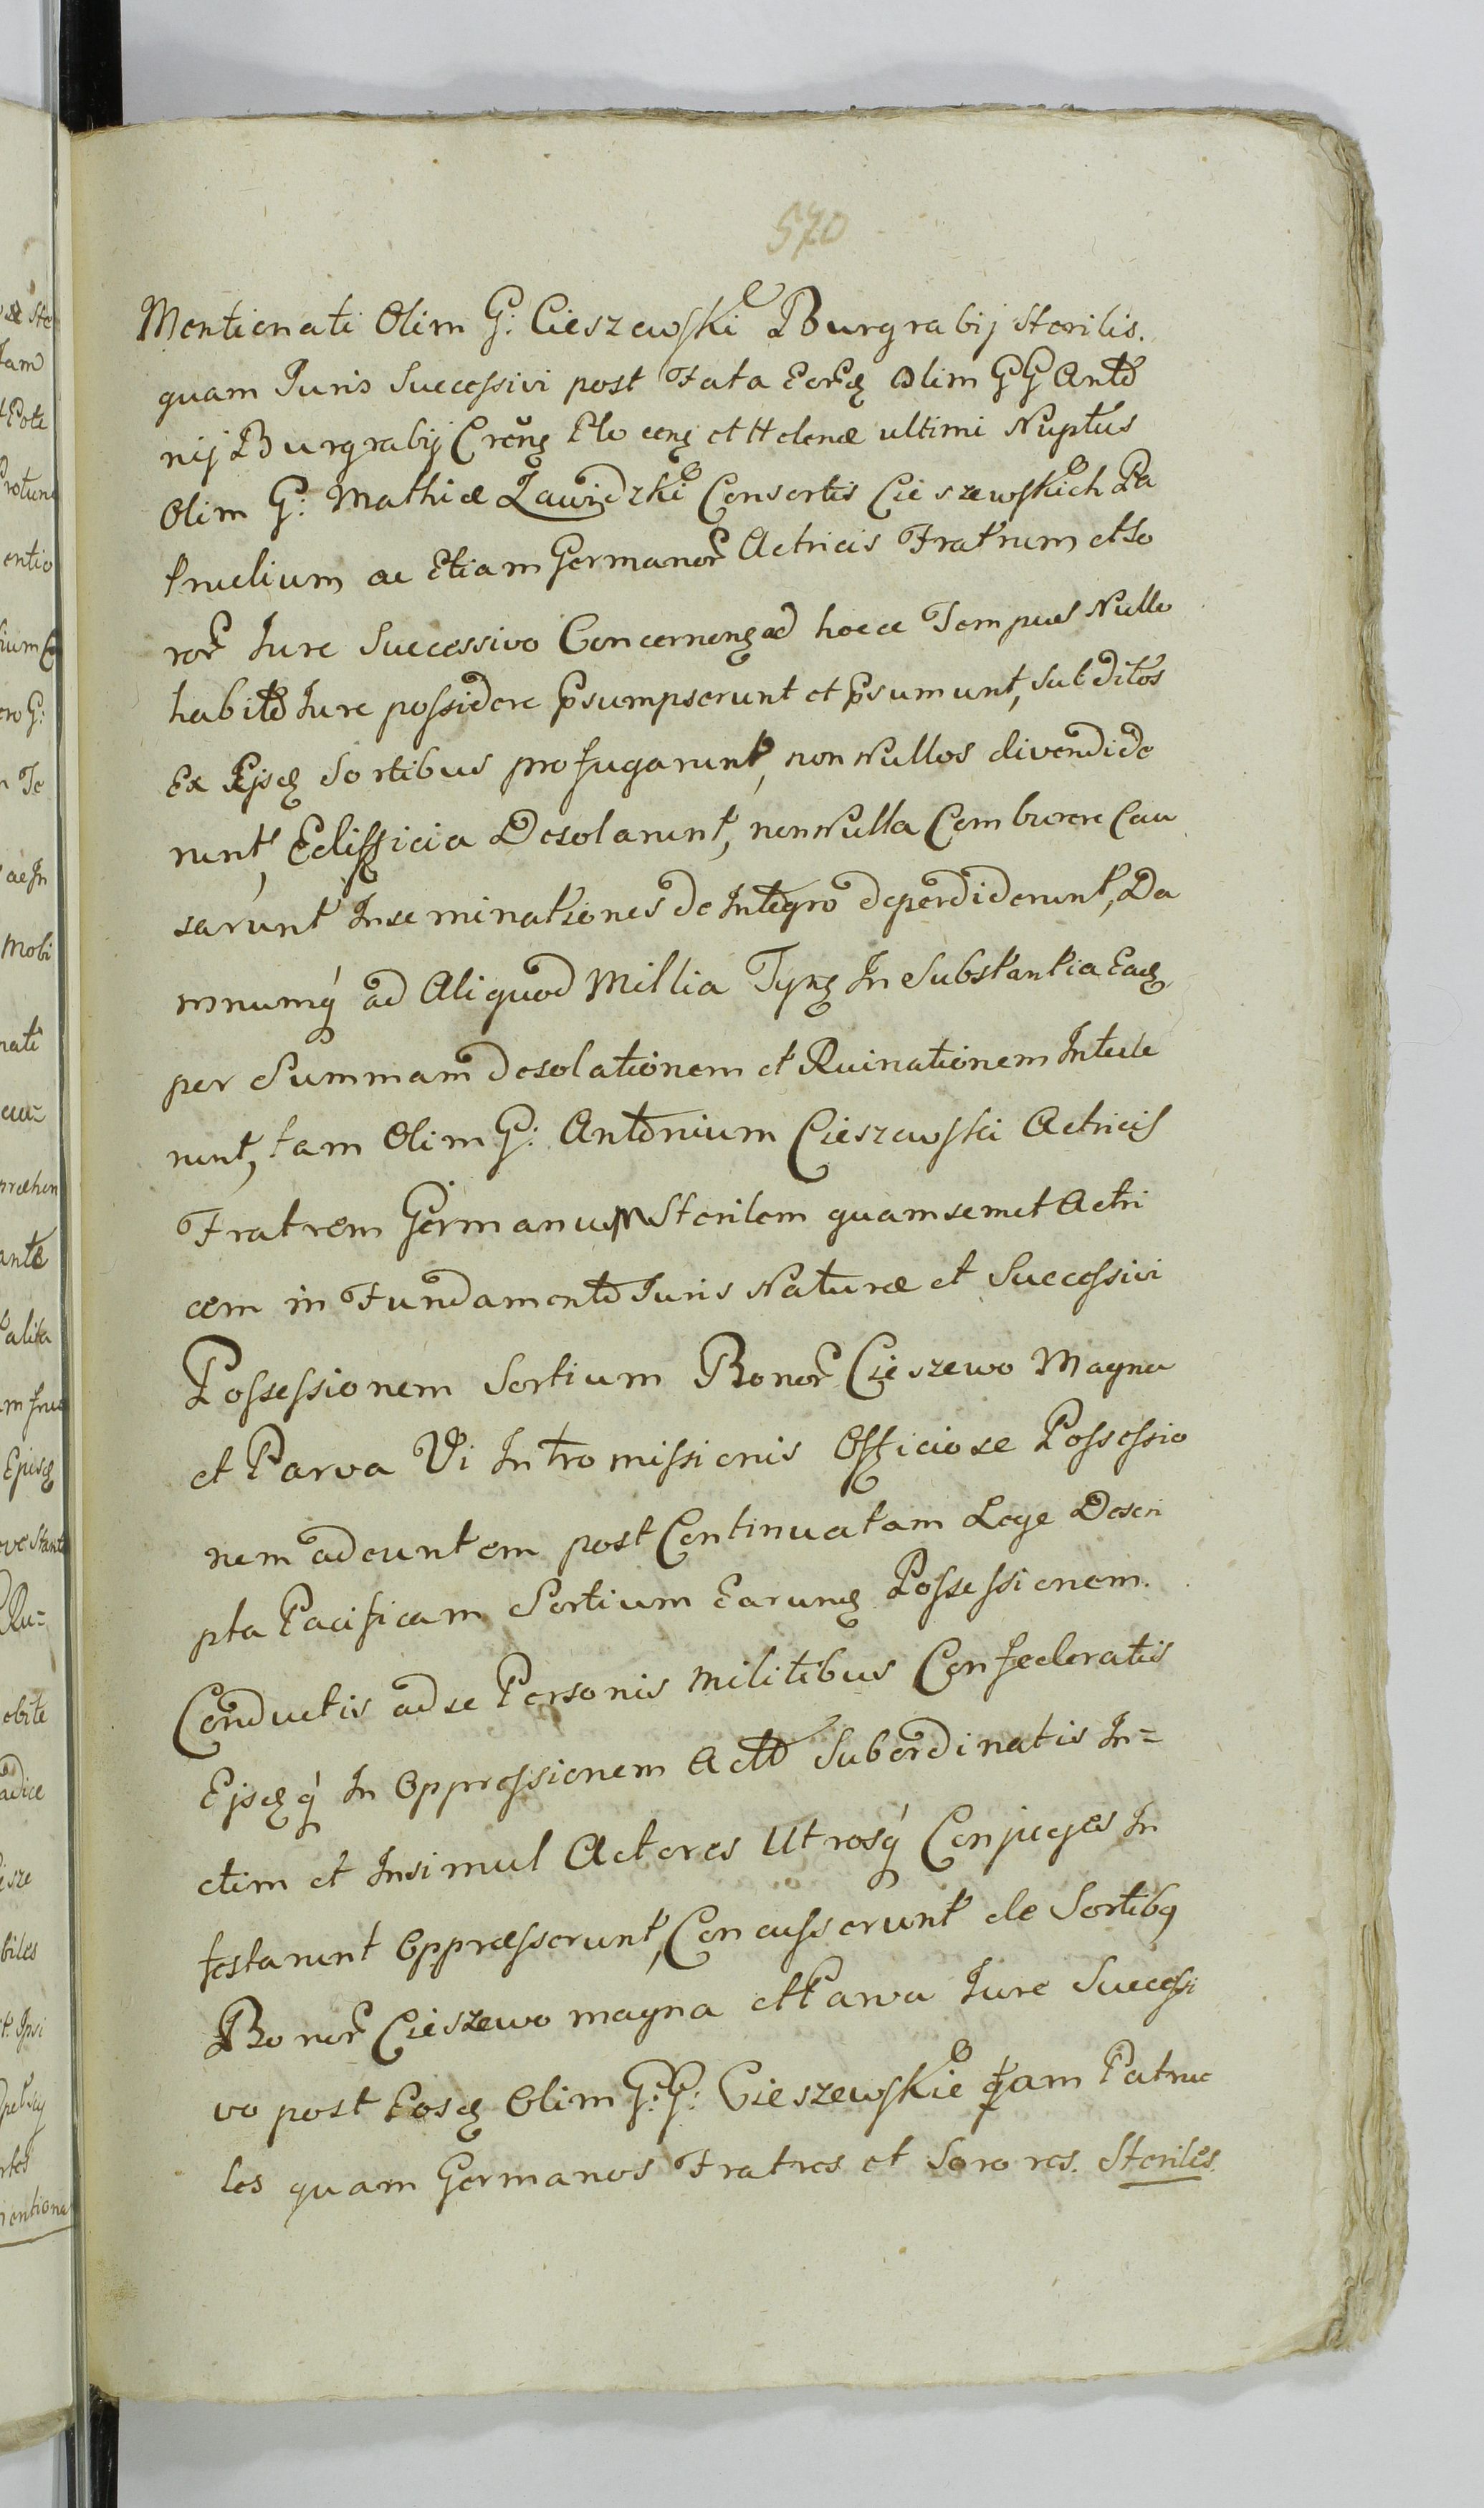 570
Mentionati Olim G: Cieszewski Burgrabij Sterilis.
quam Juris Successivi post Fata Eorz Olim GG Anto
nij Burgrabij Plo cenz et Helenæ ultimi Nuptus
Olim G: Mathiæ Zawidzki Consortis Cieszewskich Pa
truelium ac Etiam Germanor Actricis Fratrum et So
ror Jure Successivo Concernenz ad hocce Tempus Nullo
habito Jure possidere Psumpserunt et Psumunt, Subditos
Ex Ejsdz Sortibus profugarunt, nonNullos divendide
runt, Edifficia Desolarunt, nonNulla Comburere Cau
sarunt Inseminationes de Integro deperdiderunt, Da
mnumq́ ad Aliquod Millia Tynz In Substantia Eadz
per Summam Desolationem et Ruinationem Intule
runt, tam Olim G: Antonium Cieszewski Actricis
Fratrem Germanum Sterilem quam semet Actri
cem in Fundamento Juris Naturæ et Successivi
Possessionem Sortium Bonor Cieszewo Magna
et Parva Vi Intromissionis Officiose Possessio
nem adeuntem post Continuatam Lege Descri
pta Pacificam Sortium Earundz Possessionem.
Conductis ad se Personis Militibus Confœderatis
Ejsdzq́ In Oppressionem Acto Subordinatis In=
ctim et Insimul Actores Utrosq́ Conjuges In
festarunt Oppresserunt, Concusserunt de Sortibq
Bonor Cieszewo magna et Parva Jure Successi
vo post Eosdz Olim G:G: Cieszewskie tam Patrue
les quam Germanos Fratres et Sorores. Steriles.